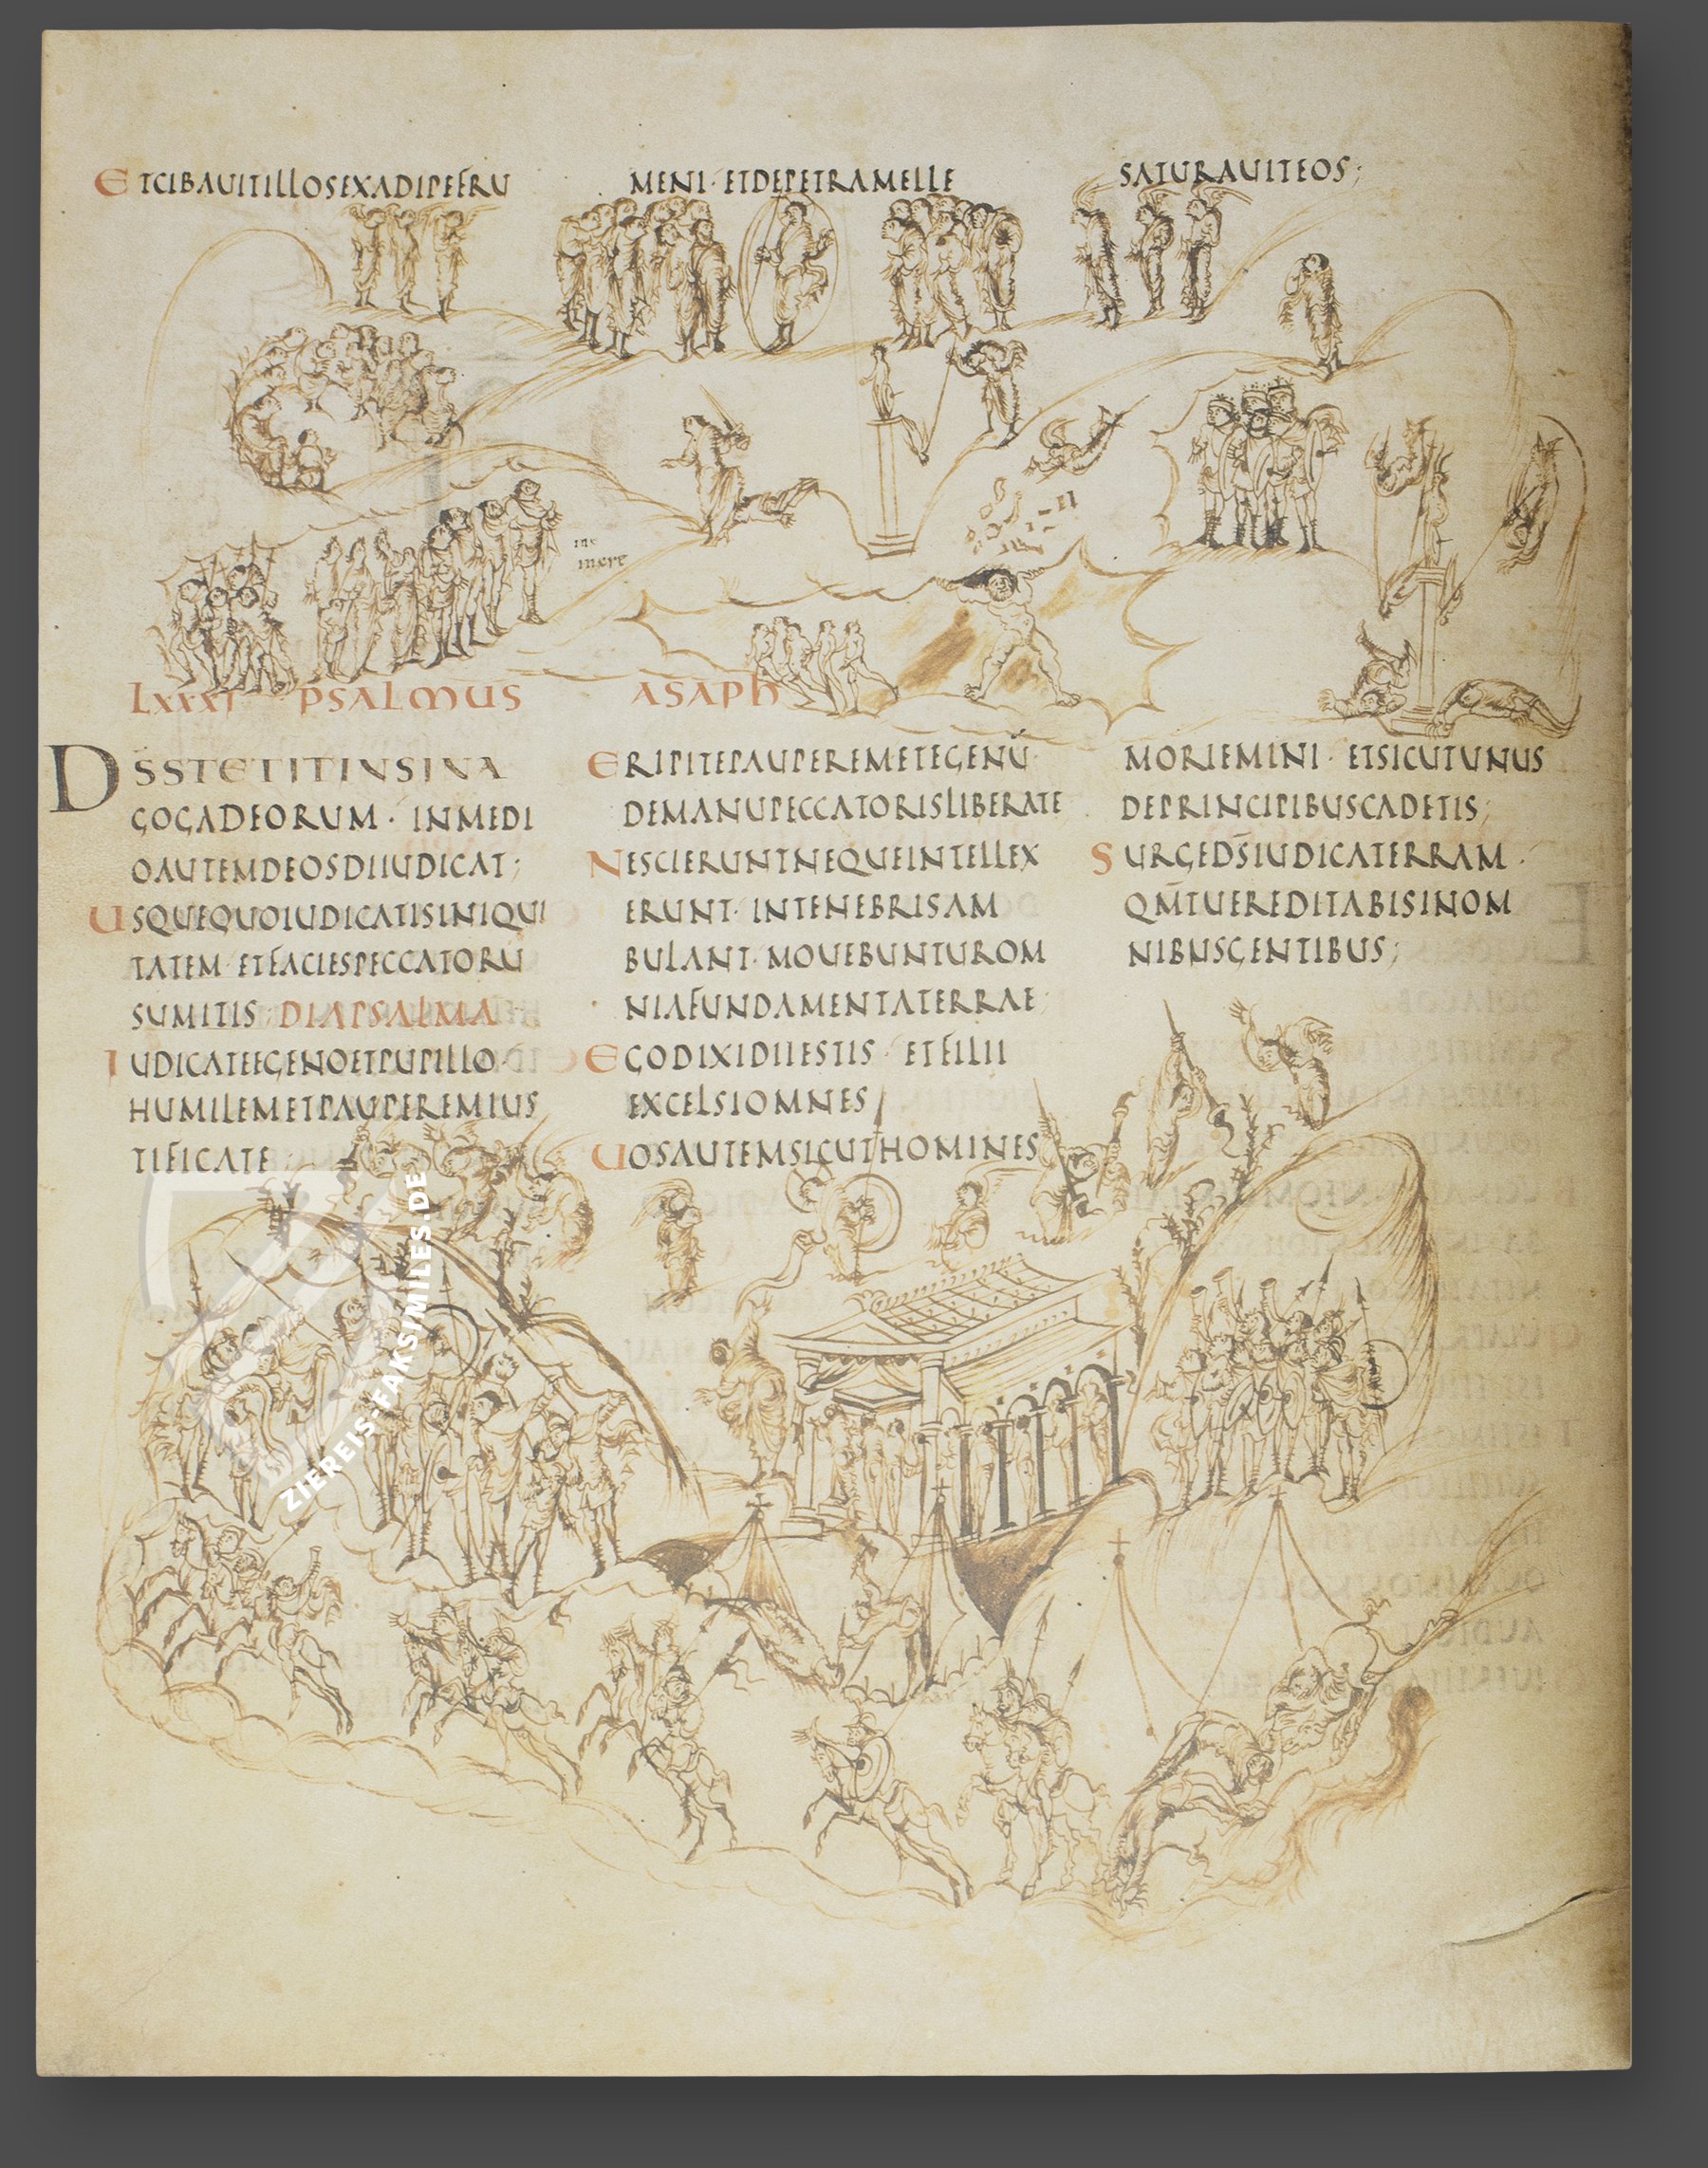 ETCIBAUITILLOSEXADIPEFRU
MENI · ETDEPETRAMELLE
SATURAUITEOS;
LXXXI PSALMUS ASAPH
DS̄STETITINSINA
GOGADEORUM · INMEDI
OAUTEMDEOSDIIUDICAT;
USQUEQUOIUDICATISINIQUI
TATEM · ETFACIESPECCATORŪ
SUMITIS · DIAPSALMA
IUDICATEEGENOETPUPILLO ·
HUMILEMETPAUPEREMIUS
TIFICATE ·
ERIPITEPAUPEREMETEGENŪ ·
DEMANUPECCATORISLIBERATE
NESCIERUNTNEQUEINTELLEX
ERUNT · INTENEBRISAM
BULANT · MOUEBUNTUROM
NIAFUNDAMENTATERRAE ·
EGODIXIDIIESTIS · ETFILII
EXCELSIOMNES
UOSAUTEMSICUTHOMINES
MORIEMINI · ETSICUTUNUS
DEPRINCIPIBUSCADETIS;
SURGEDS̄IUDICATERRAM ·
QM̄TUEREDITABISINOM
NIBUSGENTIBUS;
ZIEREIS-FAKSIMILES.DE